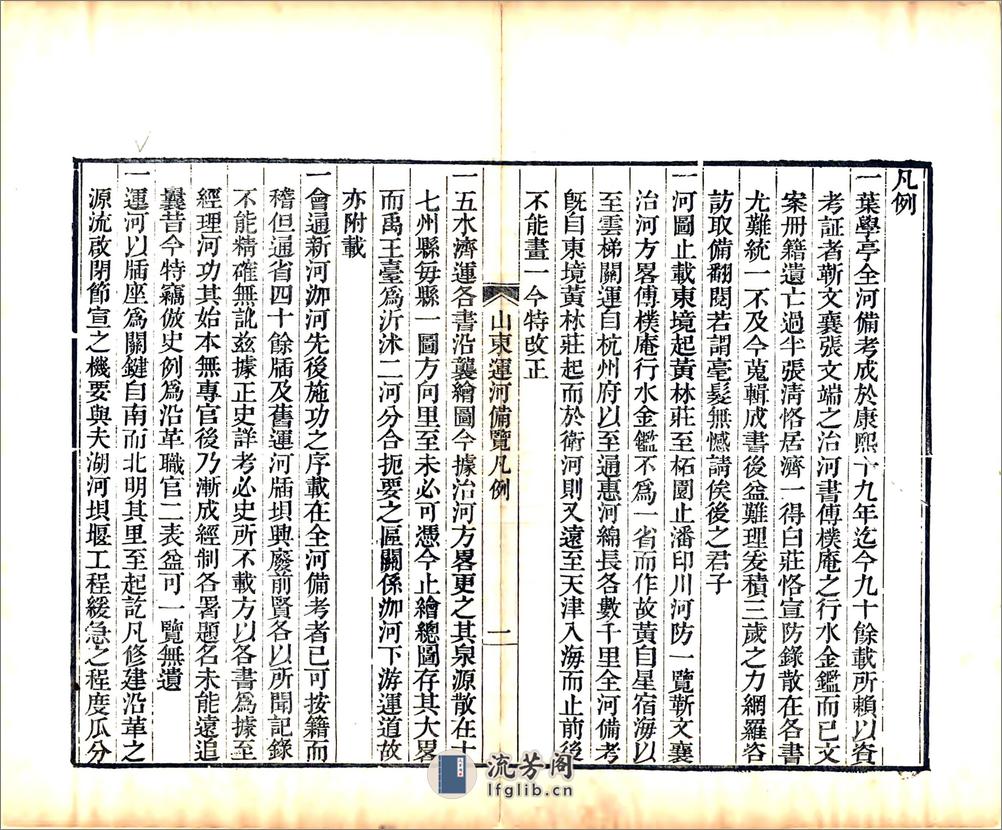 凡例
一葉學亭全河備考成於康熙十九年迄今九十餘載所賴以資
考証者靳文襄張文端之治河書傅樸庵之行水金鑑而已文
案册籍遺亡過半張清恪居濟一得白莊恪宣防錄散在各書
尤難統一不及今蒐輯成書後益難理爰積三歲之力網羅咨
訪取備翻閱若謂毫髮無憾請俟後之君子
一河圖止載東境起黃林莊至柘園止潘印川河防一覽靳文襄
治河方畧傅樸庵行水金鑑不爲一省而作故黃自星宿海以
至雲梯關運自杭州府以至通惠河綿長各數千里全河備考
旣自東境黃林莊起而於衛河則又遠至天津入海而止前後
不能畫一今特改正
山東運河備覽凡例
一
一五水濟運各書沿襲繪圖今據治河方畧更之其泉源散在十
七州縣每縣一圖方向里至未必可憑今止繪總圖存其大畧
而禹王臺爲沂沭二河分合扼要之區關係泇河下游運道故
亦附載
一會通新河泇河先後施功之序載在全河備考者已可按籍而
稽但通省四十餘牐及舊運河牐壩興廢前賢各以所聞記錄
不能精確無訛玆據正史詳考必史所不載方以各書爲據至
經理河功其始本無專官後乃漸成經制各署題名未能遠追
曩昔今特竊倣史例爲沿革職官二表益可一覽無遺
一運河以牐座爲關鍵自南而北明其里至起訖凡修建沿革之
源流啟閉節宣之機要與夫湖河壩堰工程緩急之程度瓜分
流芳阁
lfglib.cn